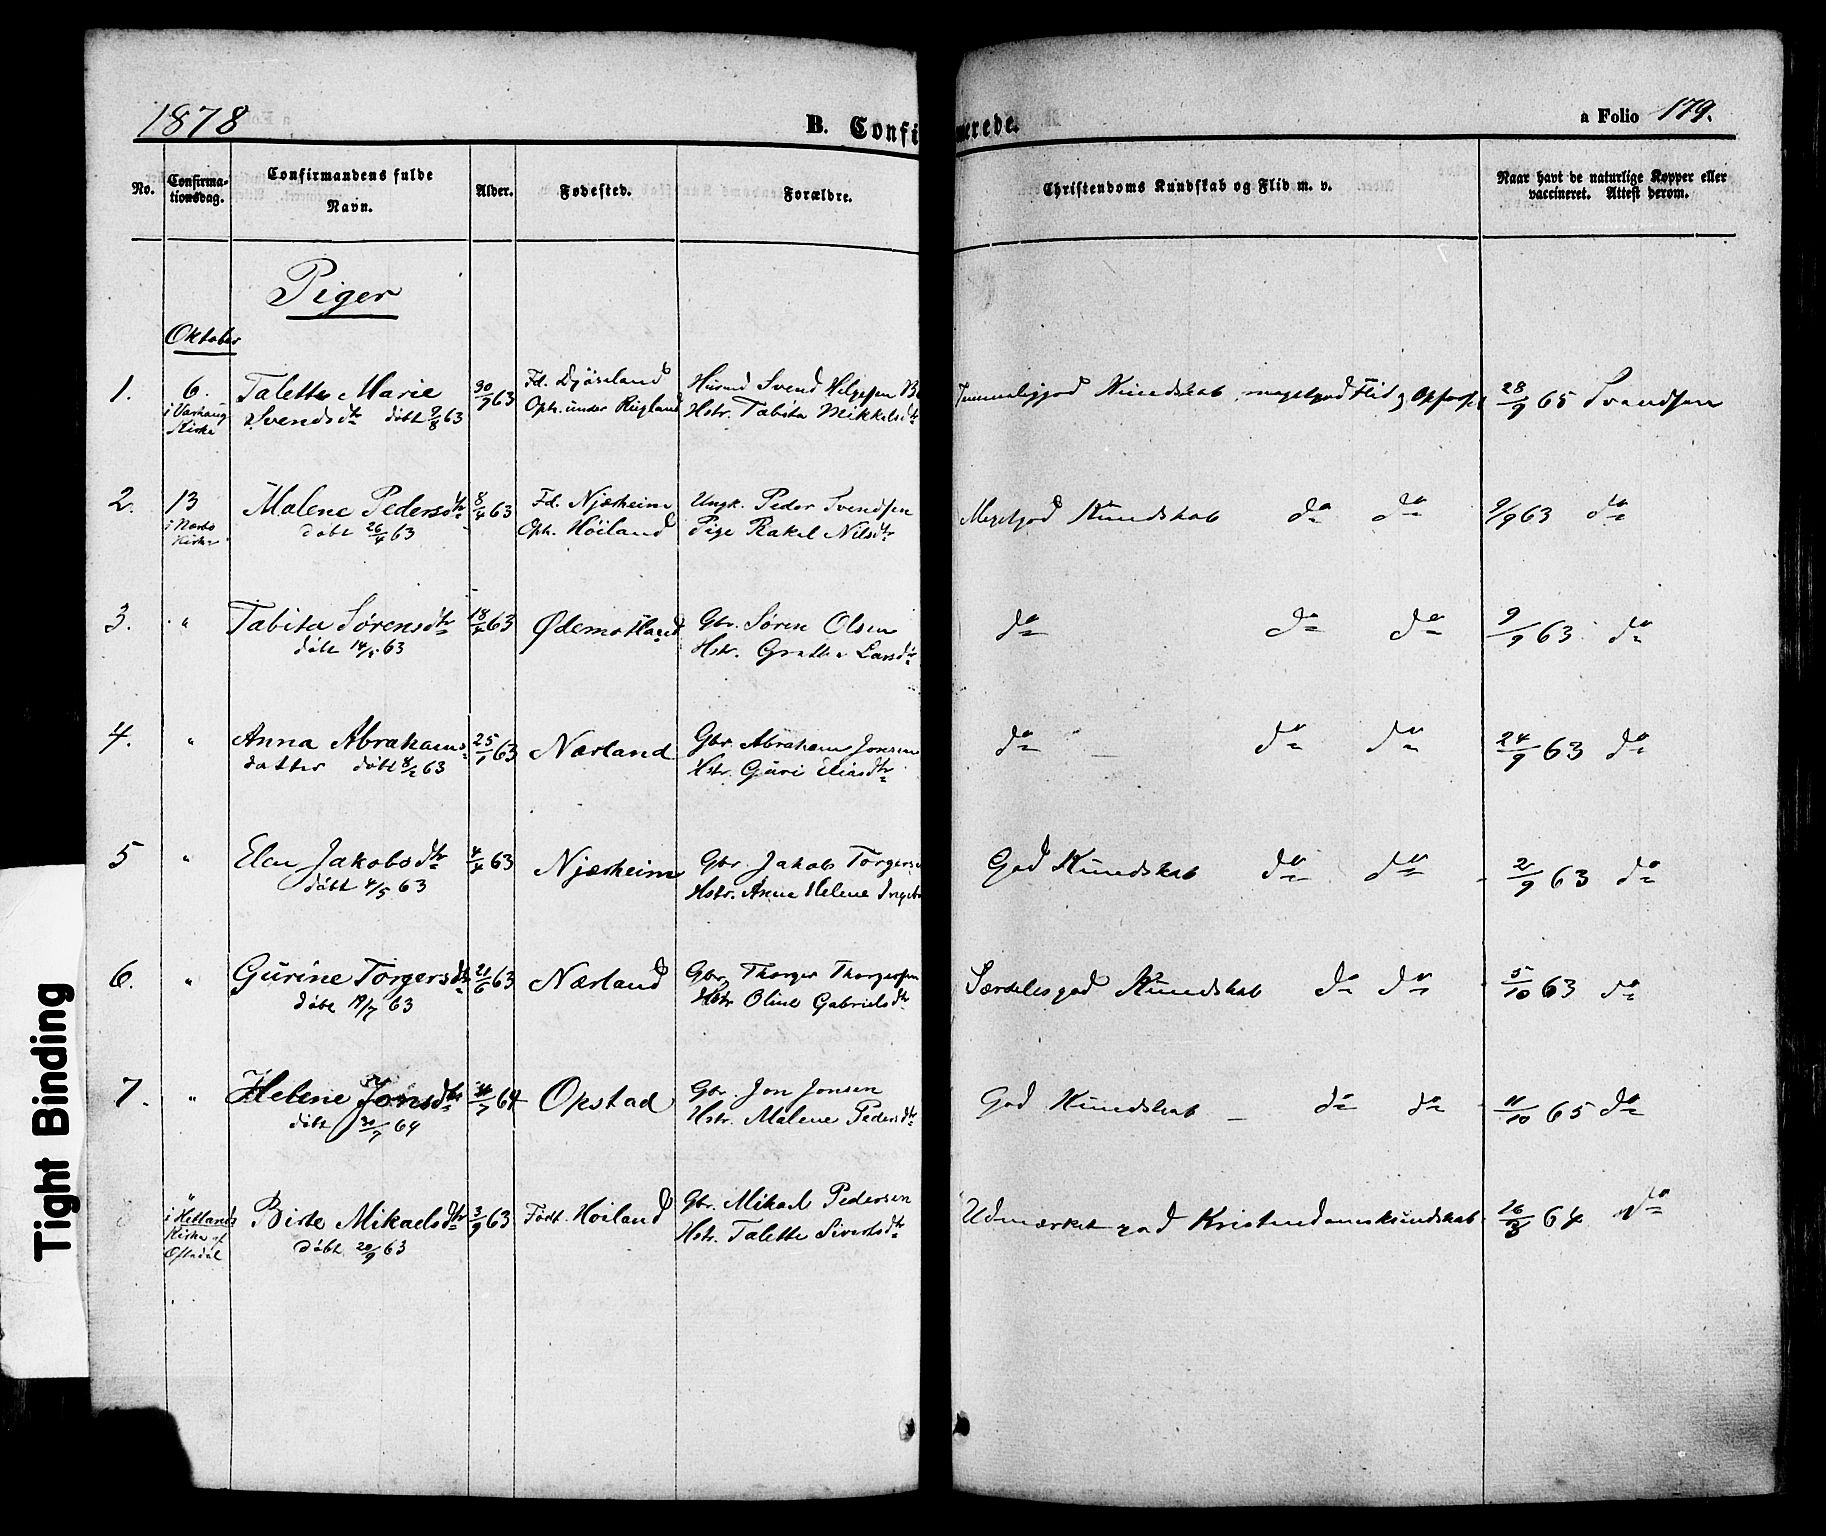 1878 B. Confi merede. a Folio 179.
No. Confirma-tionsdag. Confirmandens fulde Navn. Alder. Fødested. Forældre. Christendoms Kundskab og Flid m. v. Naar havt de naturlige Kopper eller vaccineret. Attest derom.
Piger
Oktober
1. 6. Talette Marie 30/7 63 Fd. Djøseland Svend Helgesen Kundskab megetgod Flid og 28/9 65 Svendsen
i Varhaug Svendsdtr døbt 9/8 63 Oph. under Hstr. Tabita Mikkelsdtr
Kirke
2. 13 Malene Pedersdtr 8/4 63 Fd. Njærheim Ungk. Peder Svendsen Megetgod Kundskab do do 9/9 63 do
i Nærbø døbt 26/4 63 Oph. Høiland Pige Rakel Nilsdtr
Kirke
3. " Tabita Sørensdtr 18/4 63 Ødemotland Gbr. Søren Olsen do do do 9/9 63 do
døbt 14/5 63 Hstr. Grethe Larsdtr
4. " Anna Abrahams- 25/1 63 Nærland Gbr. Abraham Jonsen do do do 24/9 63 do
datter døbt 8/2 63 Hstr. Guri Eliasdtr
5 " Elen Jakobsdtr 4/4 63 Njærheim Gbr. Jakob Torgers God Kundskab do do 2/9 63 do
døbt 4/5 63 Hstr. Anne Helene Ingeb
6. " Gurine Torgersdtr 21/6 63 Nærland Gbr. Thorger Thorgersen Særdelesgod Kundskab do do 5/10 63 do
døbt 19/7 63 Hstr Oline Gabrielsdtr
7. " Helene Jonsdtr /7 64 Opstad Gbr. Jon Jonsen God Kundskab do do 11/10 65 do
døbt 30/7 64 Hstr. Malene Pedersdtr
" Birte Mikaelsdtr 3/9 63 Født. Høiland Gbr. Mikael Pedersen Udmærket god Kristendomskundskab 26/3 64 do
i Hetlands døbt 20/9 63 Hstr. Talette Sivertsdtr
Kirke af
Oftedal
Tight Binding